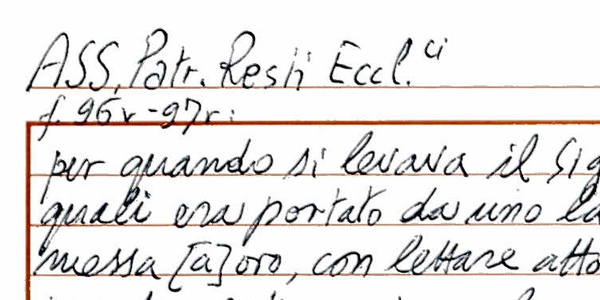 ASS, Patr. Resti Eccl.ci
f. 96v - 97r:
per quando si levava il Sig
quali era portato da uno la
messa [a] oro, con lettare atto